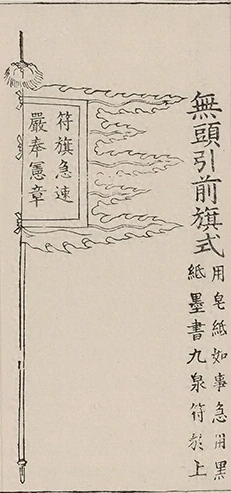 無頭引前旗式
用皂紙如事急用黑
紙墨書九泉符於上
符旗急速
嚴奉憲章